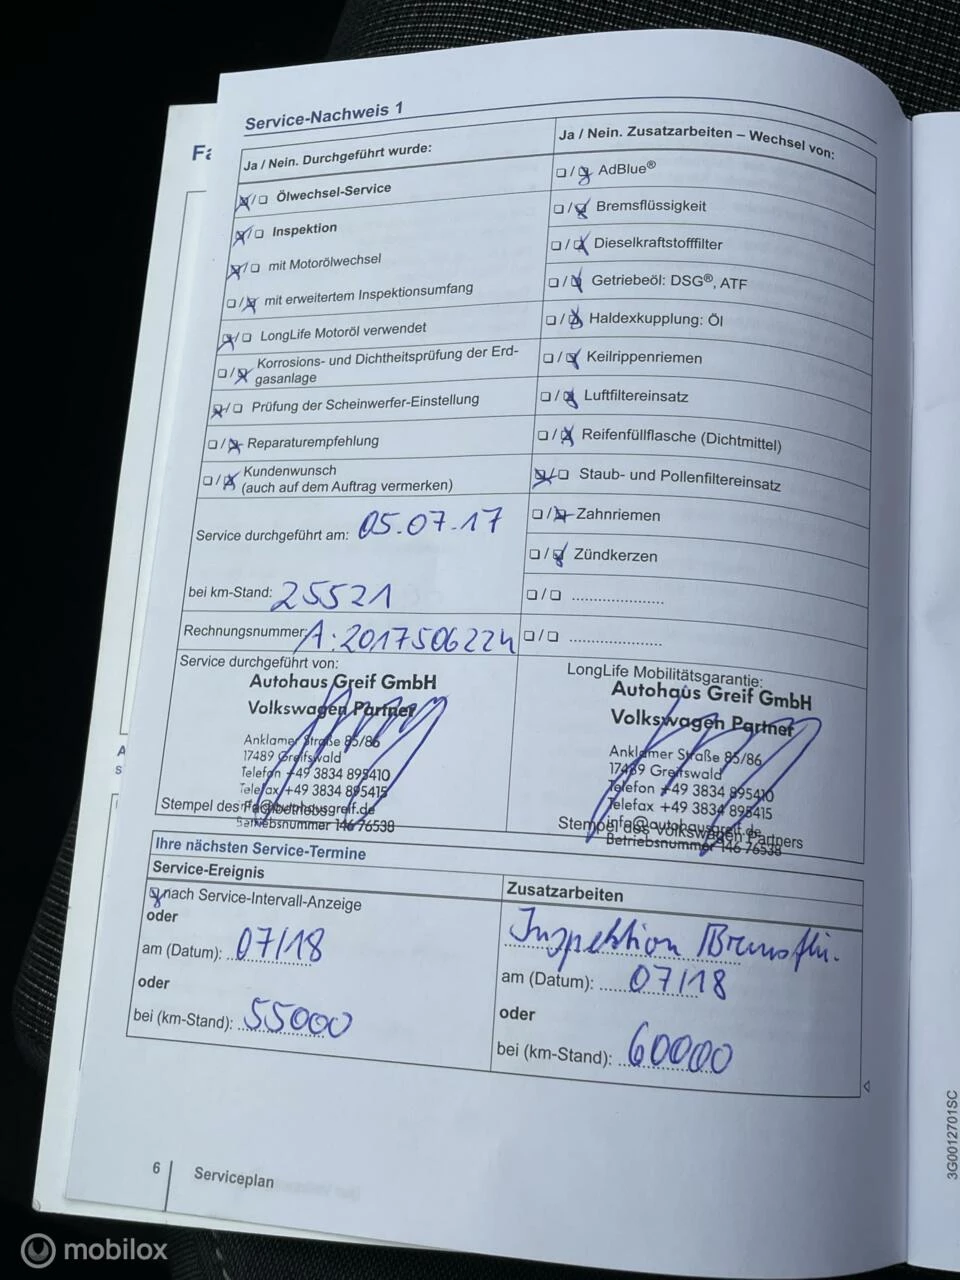 Service-Nachweis 1
Fa
Ja / Nein. Durchgeführt wurde:
☒/☐ Ölwechsel-Service
☒/☐ Inspektion
☒/☐ mit Motorölwechsel
☐/☒ mit erweitertem Inspektionsumfang
☒/☐ LongLife Motoröl verwendet
☐/☒ Korrosions- und Dichtheitsprüfung der Erd-
gasanlage
☒/☐ Prüfung der Scheinwerfer-Einstellung
☐/☒ Reparaturempfehlung
☐/☒ Kundenwunsch
(auch auf dem Auftrag vermerken)
Service durchgeführt am: 05.07.17
bei km-Stand: 25521
Rechnungsnummer: A:2017506224
Service durchgeführt von:
Autohaus Greif GmbH
Volkswagen Partner
Anklamer Straße 85/86
17489 Greifswald
Telefon +49 3834 895410
Telefax +49 3834 895415
info@autohausgreif.de
Stempel des Fachbetriebs
Betriebsnummer 146 76538
Ja / Nein. Zusatzarbeiten – Wechsel von:
☐/☒ AdBlue®
☐/☒ Bremsflüssigkeit
☐/☒ Dieselkraftstofffilter
☐/☒ Getriebeöl: DSG®, ATF
☐/☒ Haldexkupplung: Öl
☐/☒ Keilrippenriemen
☐/☒ Luftfiltereinsatz
☐/☒ Reifenfüllflasche (Dichtmittel)
☒/☐ Staub- und Pollenfiltereinsatz
☐/☒ Zahnriemen
☐/☒ Zündkerzen
☐/☐ ......................
☐/☐ ......................
LongLife Mobilitätsgarantie:
Autohaus Greif GmbH
Volkswagen Partner
Anklamer Straße 85/86
17489 Greifswald
Telefon +49 3834 895410
Telefax +49 3834 895415
info@autohausgreif.de
Stempel des Volkswagen Partners
Betriebsnummer 146 76538
Ihre nächsten Service-Termine
Service-Ereignis
☒ nach Service-Intervall-Anzeige
oder
am (Datum): 07/18
oder
bei (km-Stand): 55000
Zusatzarbeiten
Inspektion Bremsflü.
am (Datum): 07/18
oder
bei (km-Stand): 60000
6 Serviceplan
3G0012701SC
mobilox